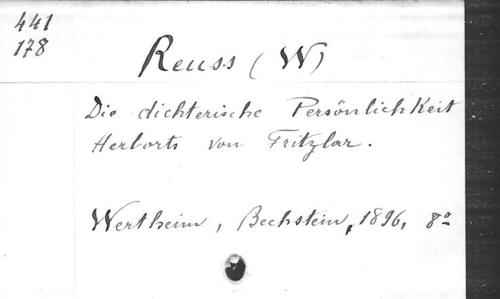 441
178
Reuss (W)
Die dichterische Persönlichkeit
Herborts von Fritzlar.
Wertheim, Bechstein, 1896, 8º